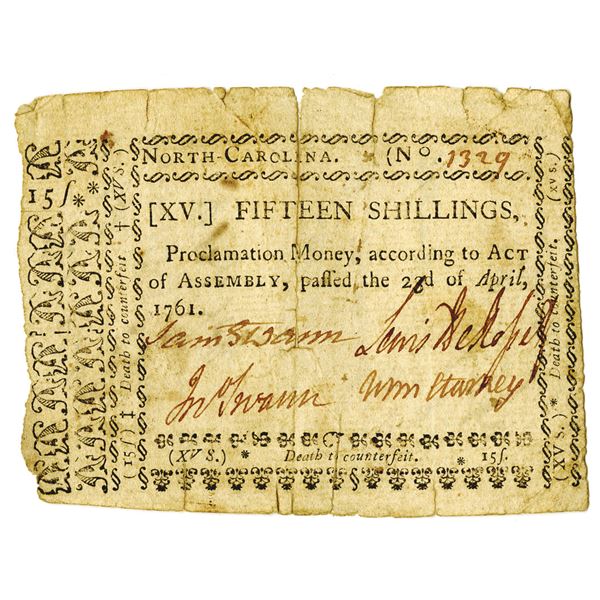 NORTH-CAROLINA. (No. 1329
15ſ **
[XV.] FIFTEEN SHILLINGS,
Proclamation Money, according to ACT
of ASSEMBLY, paſſed the 23d of April,
1761.
Sam Swann Lewis DeRoſſet
Jno Swann Wm Starkey
(XV S.) * Death to counterfeit. * 15ſ.
(15ſ) ‡ Death to counterfeit † (XVS.)
(XV S.) * Death to counterfeit. (XV S.)